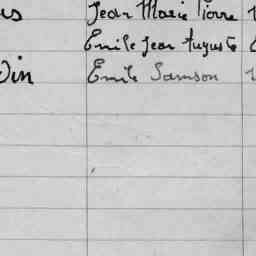 Jean Marie Pierre
Emile Jean Auguste
Emile Samson